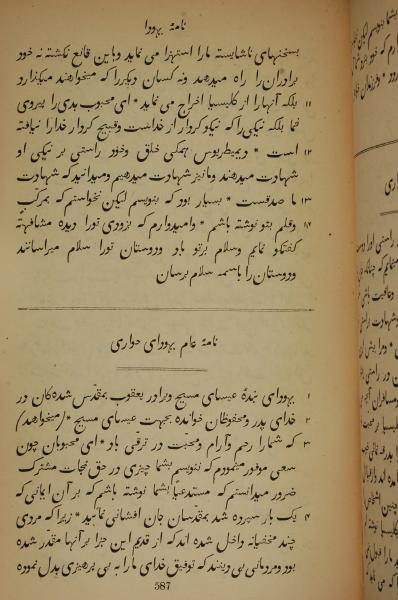 نامهٔ یهودا
بسخنهای ناشایسته ما را استهزا می نماید و باین قانع نگشته نه خود
برادران را راه میدهد و نه کسان دیگر را که میخواهند میگذارد
۱۱ بلکه آنها را از کلیسیا اخراج می نماید * ای محبوب بدی را پیروی
منما بلکه نیکی را که نیکو کردار از خداست و قبیح کردار خدا را نیافته
۱۲ است * دیمیطریوس همکی خلق و خود راستی بر نیکی او
شهادت میدهند و ما نیز شهادت میدهیم و میدانید که شهادت
۱۳ ما صدقست * بسیار بود که بنویسم لیکن نخواستم که بمرکب
۱۴ و قلم بتو نوشته باشم * و امیدوارم که بزودی ترا دیده مشافهة
گفتکو نمایم و سلام بر تو باد و دوستان ترا سلام میرسانند
و دوستان را باسمه سلام برسان
نامهٔ عام یهودای حواری
۱ یهودای بندهٔ عیسای مسیح و برادر یعقوب بمقدّس شده کان در
۲ خدای پدر و محفوظان خوانده بجهت عیسای مسیح * (میخواهد)
۳ که شما را رحم و آرام و محبّت در ترقی باد * ای محبوبان چون
سعی موفور مینمودم که بنویسم بشما چیزی در حق نجات مشترک
ضرور میدانستم که مستدعیاً بشما نوشته باشم که بر آن ایمانی که
۴ یک بار سپرده شد بمقدسان جان افشانی نمائید * زیرا که مردی
چند مخفیانه داخل شده اند که از قدیم این جزا بر آنها مقدّر شده
بود و مردمانی بی دینند که توفیق خدای ما را به بی پرهیزی بدل نموده
587